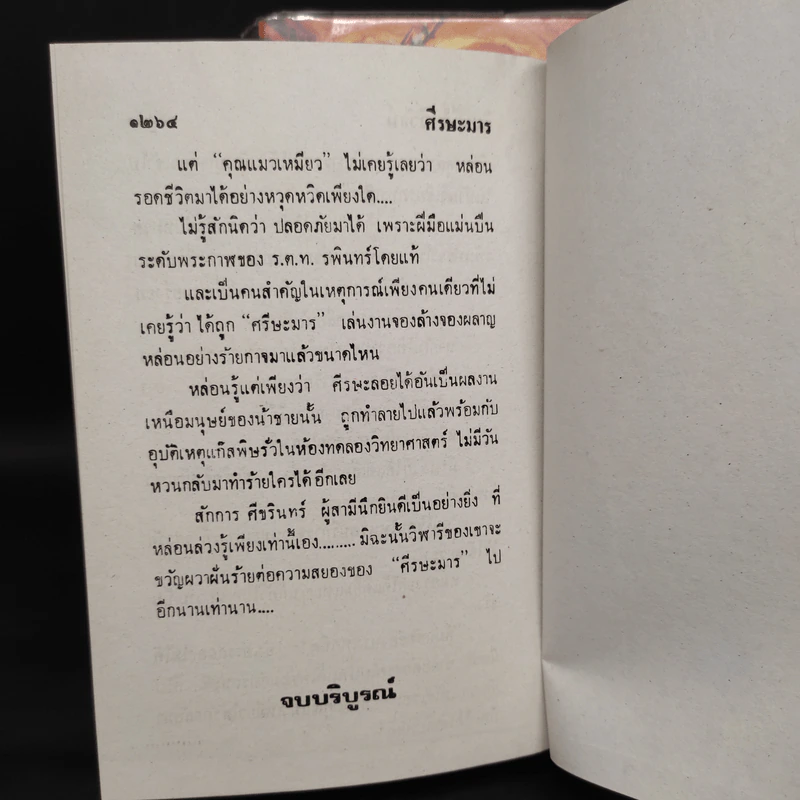 ๑๒๖๔ ศีรษะมาร
แต่ “คุณแมวเหมียว” ไม่เคยรู้เลยว่า หล่อน
รอดชีวิตมาได้อย่างหวุดหวิดเพียงใด....
ไม่รู้สักนิดว่า ปลอดภัยมาได้ เพราะฝีมือแม่นปืน
ระดับพระกาฬของ ร.ต.ท. รพินทร์โดยแท้
และเป็นคนสำคัญในเหตุการณ์เพียงคนเดียวที่ไม่
เคยรู้ว่า ได้ถูก “ศรีษะมาร” เล่นงานจองล้างจองผลาญ
หล่อนอย่างร้ายกาจมาแล้วขนาดไหน
หล่อนรู้แต่เพียงว่า ศีรษะลอยได้อันเป็นผลงาน
เหนือมนุษย์ของน้าชายนั้น ถูกทำลายไปแล้วพร้อมกับ
อุบัติเหตุแก๊สพิษรั่วในห้องทดลองวิทยาศาสตร์ ไม่มีวัน
หวนกลับมาทำร้ายใครได้อีกเลย
สักการ ศีขรินทร์ ผู้สามีนึกยินดีเป็นอย่างยิ่ง ที่
หล่อนล่วงรู้เพียงเท่านี้เอง......... มิฉะนั้นวิฬารีของเขาจะ
ขวัญผวาฝันร้ายต่อความสยองของ “ศีรษะมาร” ไป
อีกนานเท่านาน....
จบบริบูรณ์